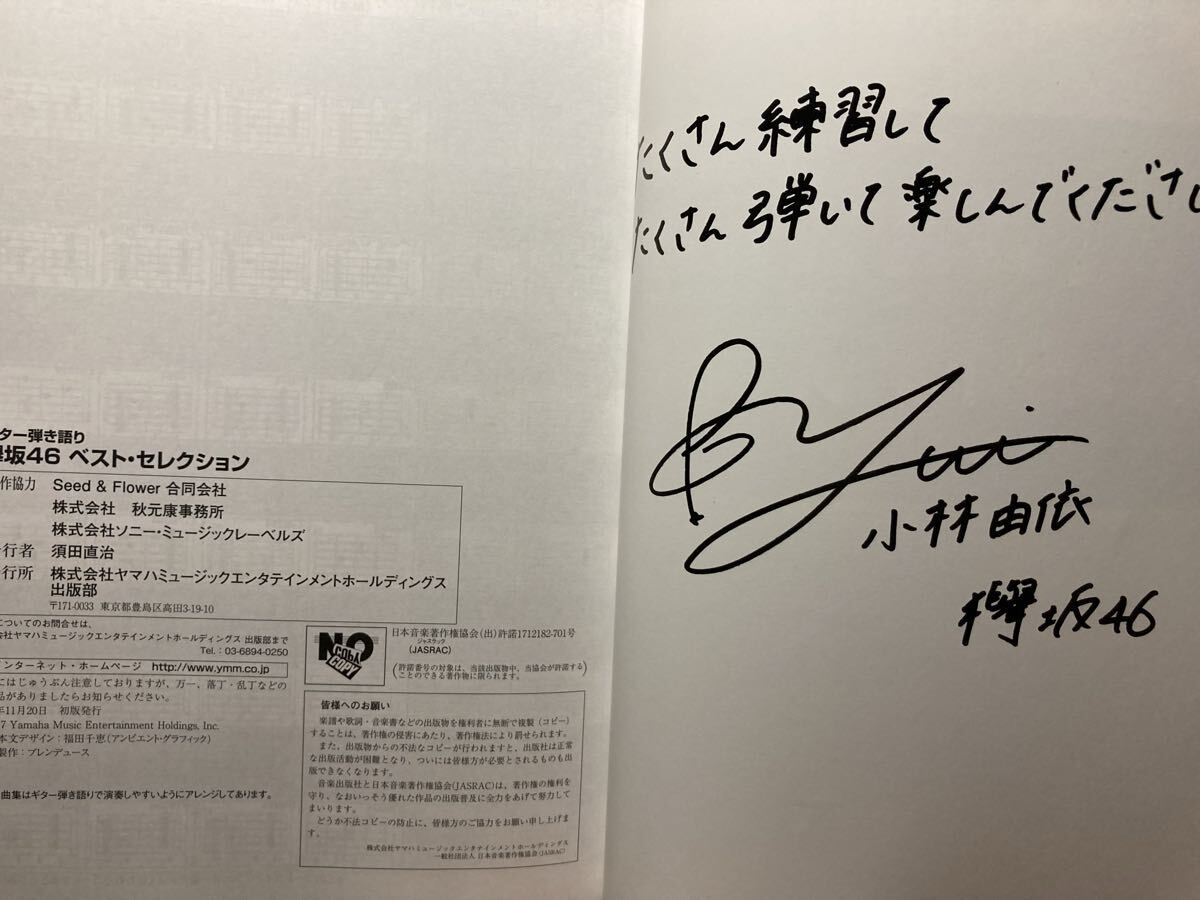 ター弾き語り
坂46 ベスト・セレクション
作協力 Seed & Flower 合同会社
株式会社 秋元康事務所
株式会社ソニー・ミュージックレーベルズ
行者 須田直治
行所 株式会社ヤマハミュージックエンタテインメントホールディングス
出版部
〒171-0033 東京都豊島区高田3-19-10
についてのお問合せは、
会社ヤマハミュージックエンタテインメントホールディングス 出版部まで
Tel:03-6894-0250
インターネット・ホームページ http://www.ymm.co.jp
にはじゅうぶん注意しておりますが、万一、落丁・乱丁などの
品がありましたらお知らせください。
年11月20日 初版発行
7 Yamaha Music Entertainment Holdings, Inc.
本文デザイン:福田千恵(アンビエント・グラフィック)
製作:ブレンデュース
曲集はギター弾き語りで演奏しやすいようにアレンジしてあります。
NO
COPY
COPY
日本音楽著作権協会(出)許諾1712182-701号
ジャスラック
(JASRAC)
(許諾番号の対象は、当該出版物中、当協会が許諾する
ことのできる著作物に限られます。)
皆様へのお願い
楽譜や歌詞・音楽書などの出版物を権利者に無断で複製(コピー)
することは、著作権の侵害にあたり、著作権法により罰せられます。
また、出版物からの不法なコピーが行われますと、出版社は正常
な出版活動が困難となり、ついには皆様方が必要とされるものも出
版できなくなります。
音楽出版社と日本音楽著作権協会(JASRAC)は、著作権の権利を
守り、なおいっそう優れた作品の出版普及に全力をあげて努力して
まいります。
どうか不法コピーの防止に、皆様方のご協力をお願い申し上げま
す。
株式会社ヤマハミュージックエンタテインメントホールディングス
一般社団法人 日本音楽著作権協会(JASRAC)
たくさん 練習して
たくさん 弾いて 楽しんでくださ
Yui
小林由依
欅坂46